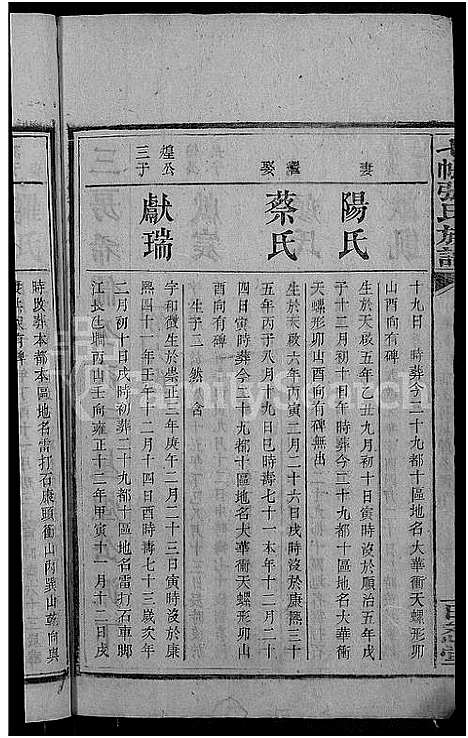 張氏族譜
十九日　時葬今二十九都十區地名大華衝天螺形卯
山酉向有碑
妻
陽氏
生於天啟五年乙丑九月初十日寅時沒於順治五年戌
子十二月初十日午時葬今二十九都十區地名大華衝
天螺形卯山酉向有碑無出
繼娶
蔡氏
生於天啟六年丙寅二月二十六日戌時沒於康熙三十
五年丙子八月十九日巳時壽七十一本年十二月二十
四日寅時葬今二十九都十區地名大華衝天螺形卯山
酉向有碑
生子二　然　含
煌公三子
獻瑞
字和徵生於崇正三年庚午二月二十三日寅時沒於康
熙四十一年壬午十二月十四日酉時壽七十三歲次年
二月初十日戌時初葬二十九都十區地名雷打石車腳
江長生壋丙山壬向雍正十二年甲寅十一月十二日戌
時改葬本都本區地名雷打石康頭衝山內巽山乾向與